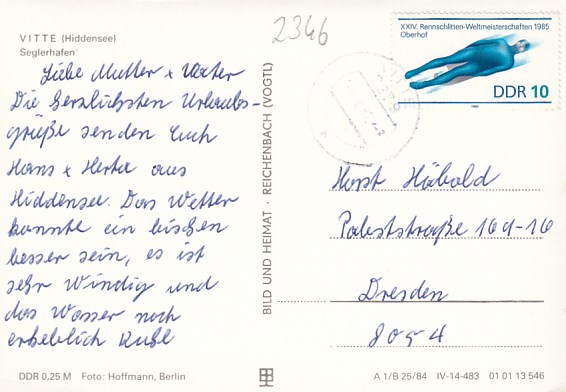 VITTE (Hiddensee)
Seglerhafen
2346
XXIV. Rennschlitten-Weltmeisterschaften 1985
Oberhof
DDR 10
Liebe Mutter + Vater
Die herzlichsten Urlaubs-
grüße senden Euch
Hans + Herta aus
Hiddensee. Das Wetter
konnte ein bischen
besser sein, es ist
sehr Windig und
das Wasser noch
erheblich kühl
BILD UND HEIMAT · REICHENBACH (VOGTL)
Horst Häbold
Pabststraße 169-16
Dresden
8054
DDR 0,25 M Foto: Hoffmann, Berlin
A 1/B 25/84 IV-14-483 01 01 13 546